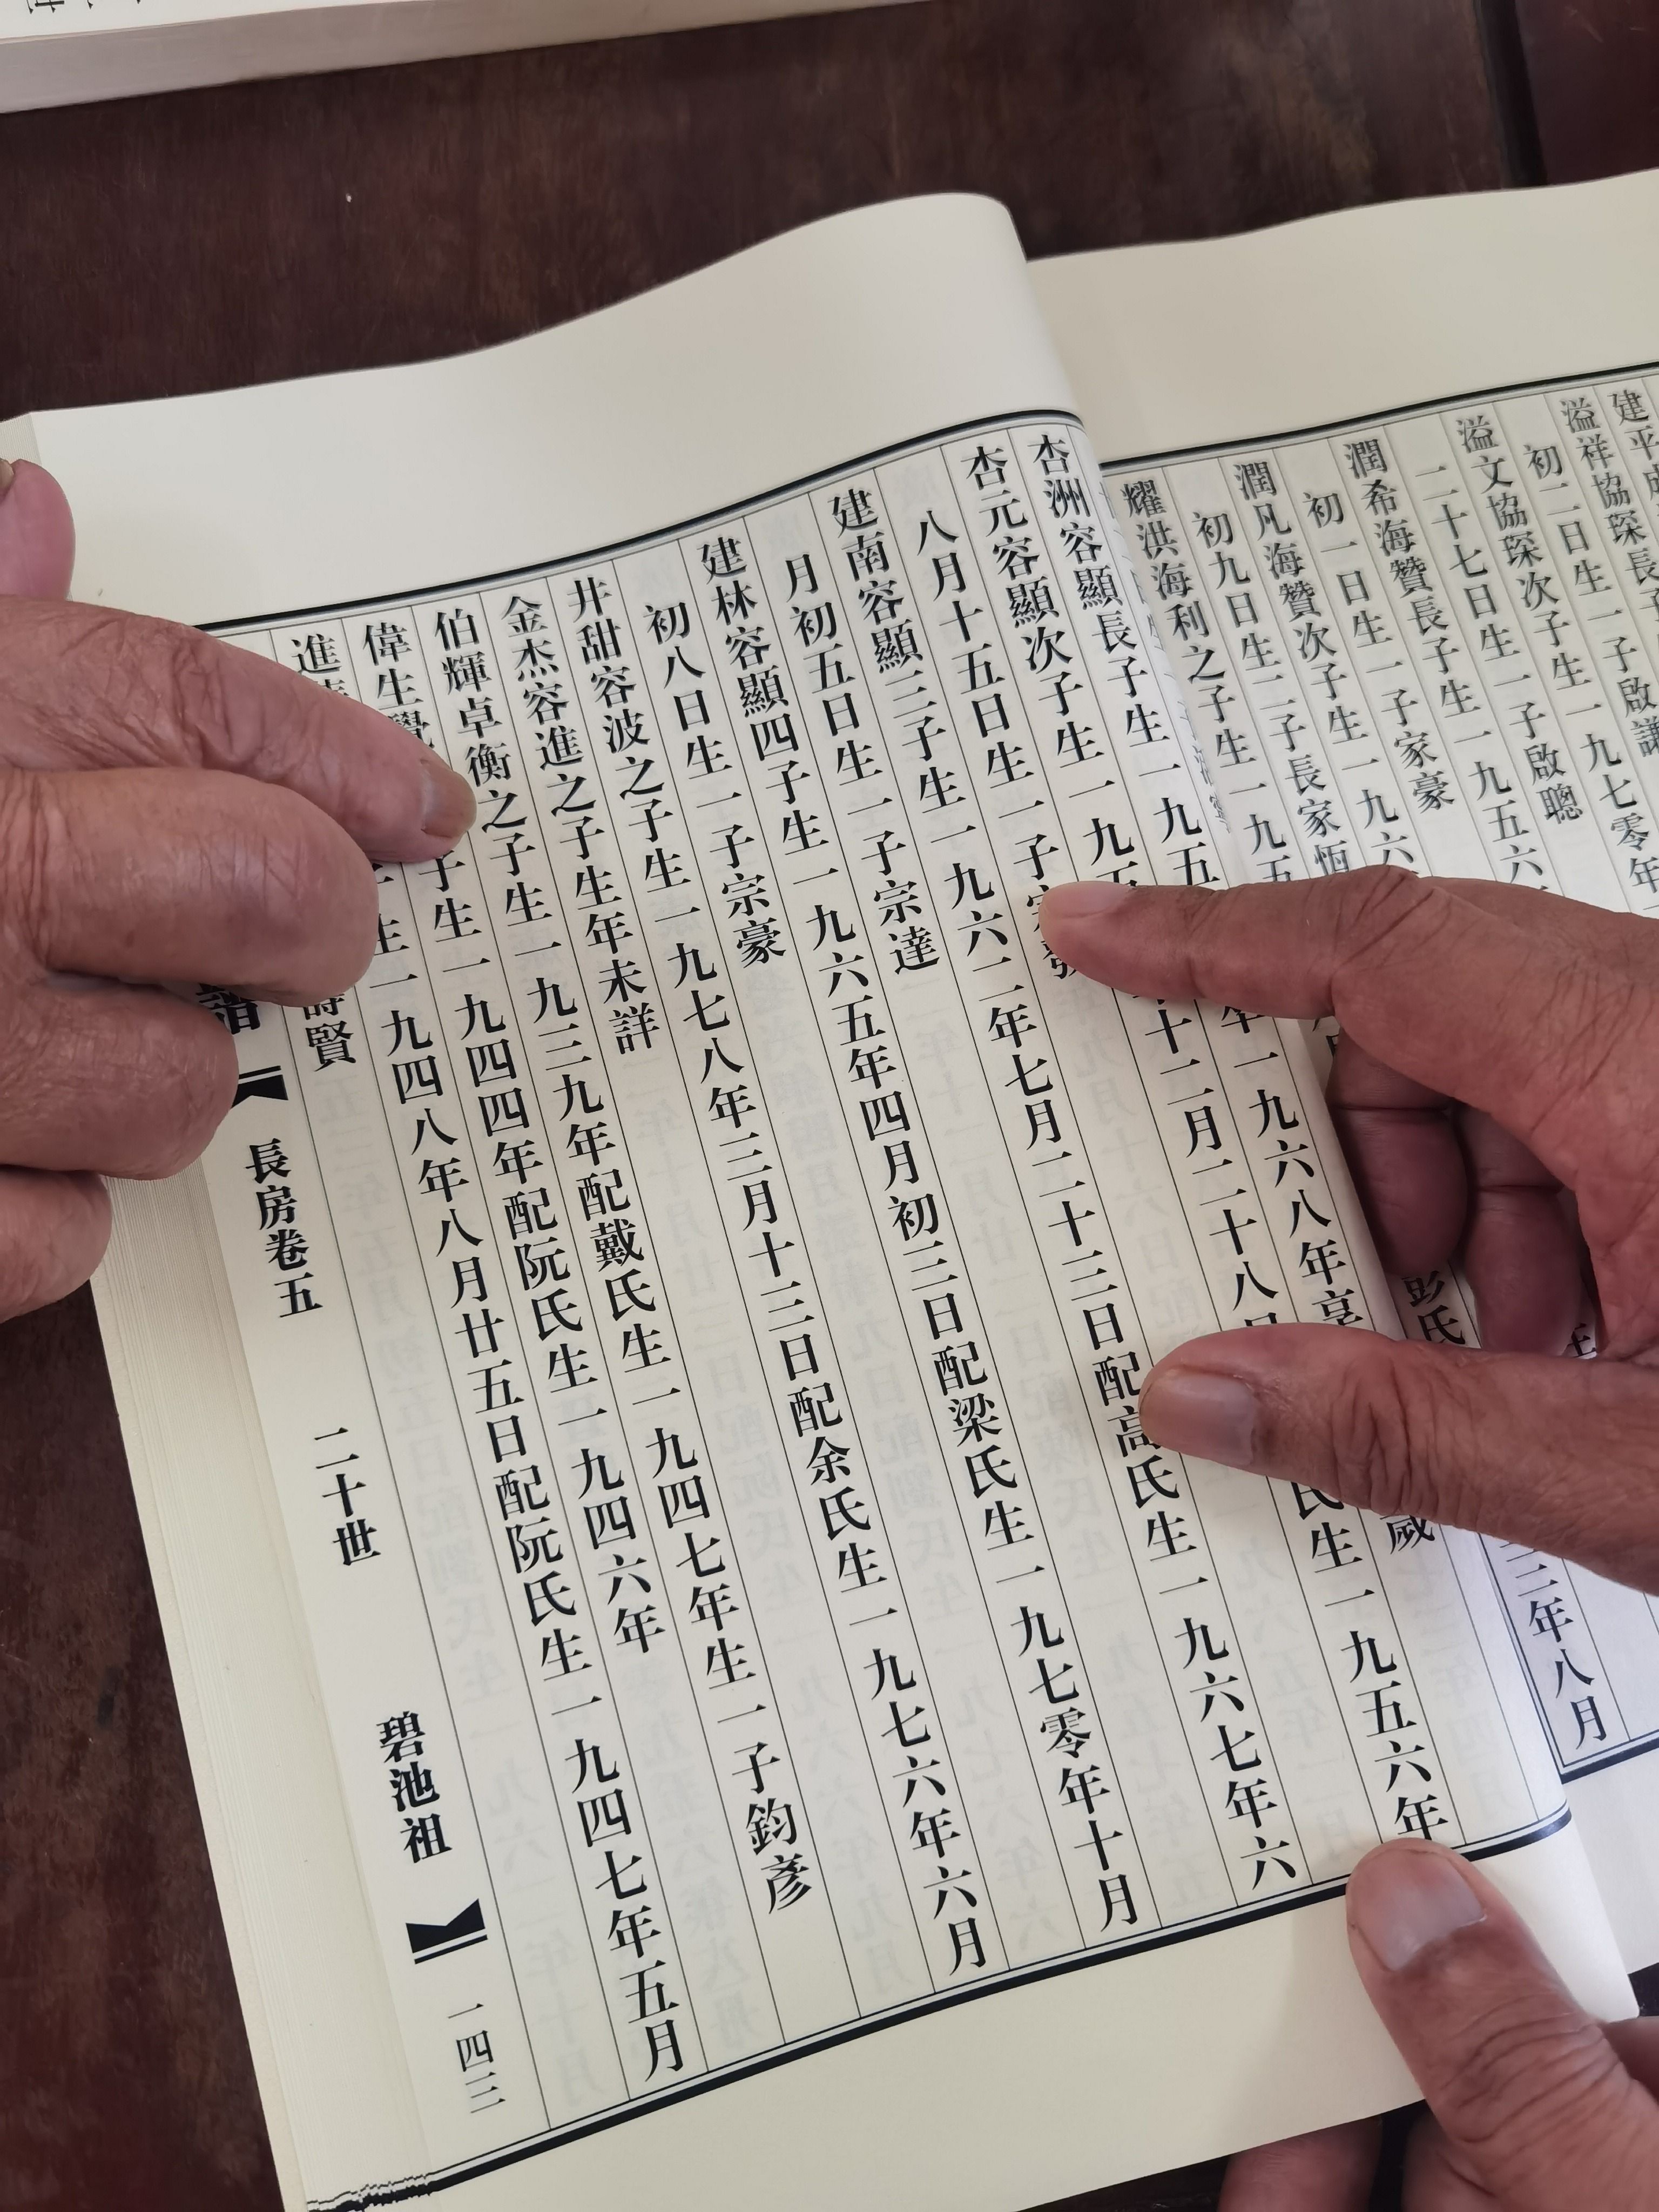 建平
溢祥協琛長子
初二日生一子啟謙
溢文協琛次子生一九七零年
二十七日生一子啟聰
潤希海贊長子生一九五六
初一日生一子家豪
潤凡海贊次子生一九六
初九日生二子長家恆
耀洪海利之子生一九五
彭氏
三年八月
杏洲容顯長子生一九五 年一九六八年享 歲
杏元容顯次子生一九五 十二月二十八日 氏生一九五六年
八月十五日生一子宗發
建南容顯三子生一九六二年七月二十三日配高氏生一九六七年六
月初五日生一子宗達
建林容顯四子生一九六五年四月初三日配梁氏生一九七零年十月
初八日生一子宗豪
井甜容波之子生一九七八年三月十三日配余氏生一九七六年六月
金杰容進之子生年未詳
伯輝卓衡之子生一九三九年配戴氏生一九四七年生一子鈞彥
偉生覺 子生一九四四年配阮氏生一九四六年
進 生一九四八年八月廿五日配阮氏生一九四七年五月
賢
譜 長房卷五 二十世 碧池祖 一四三